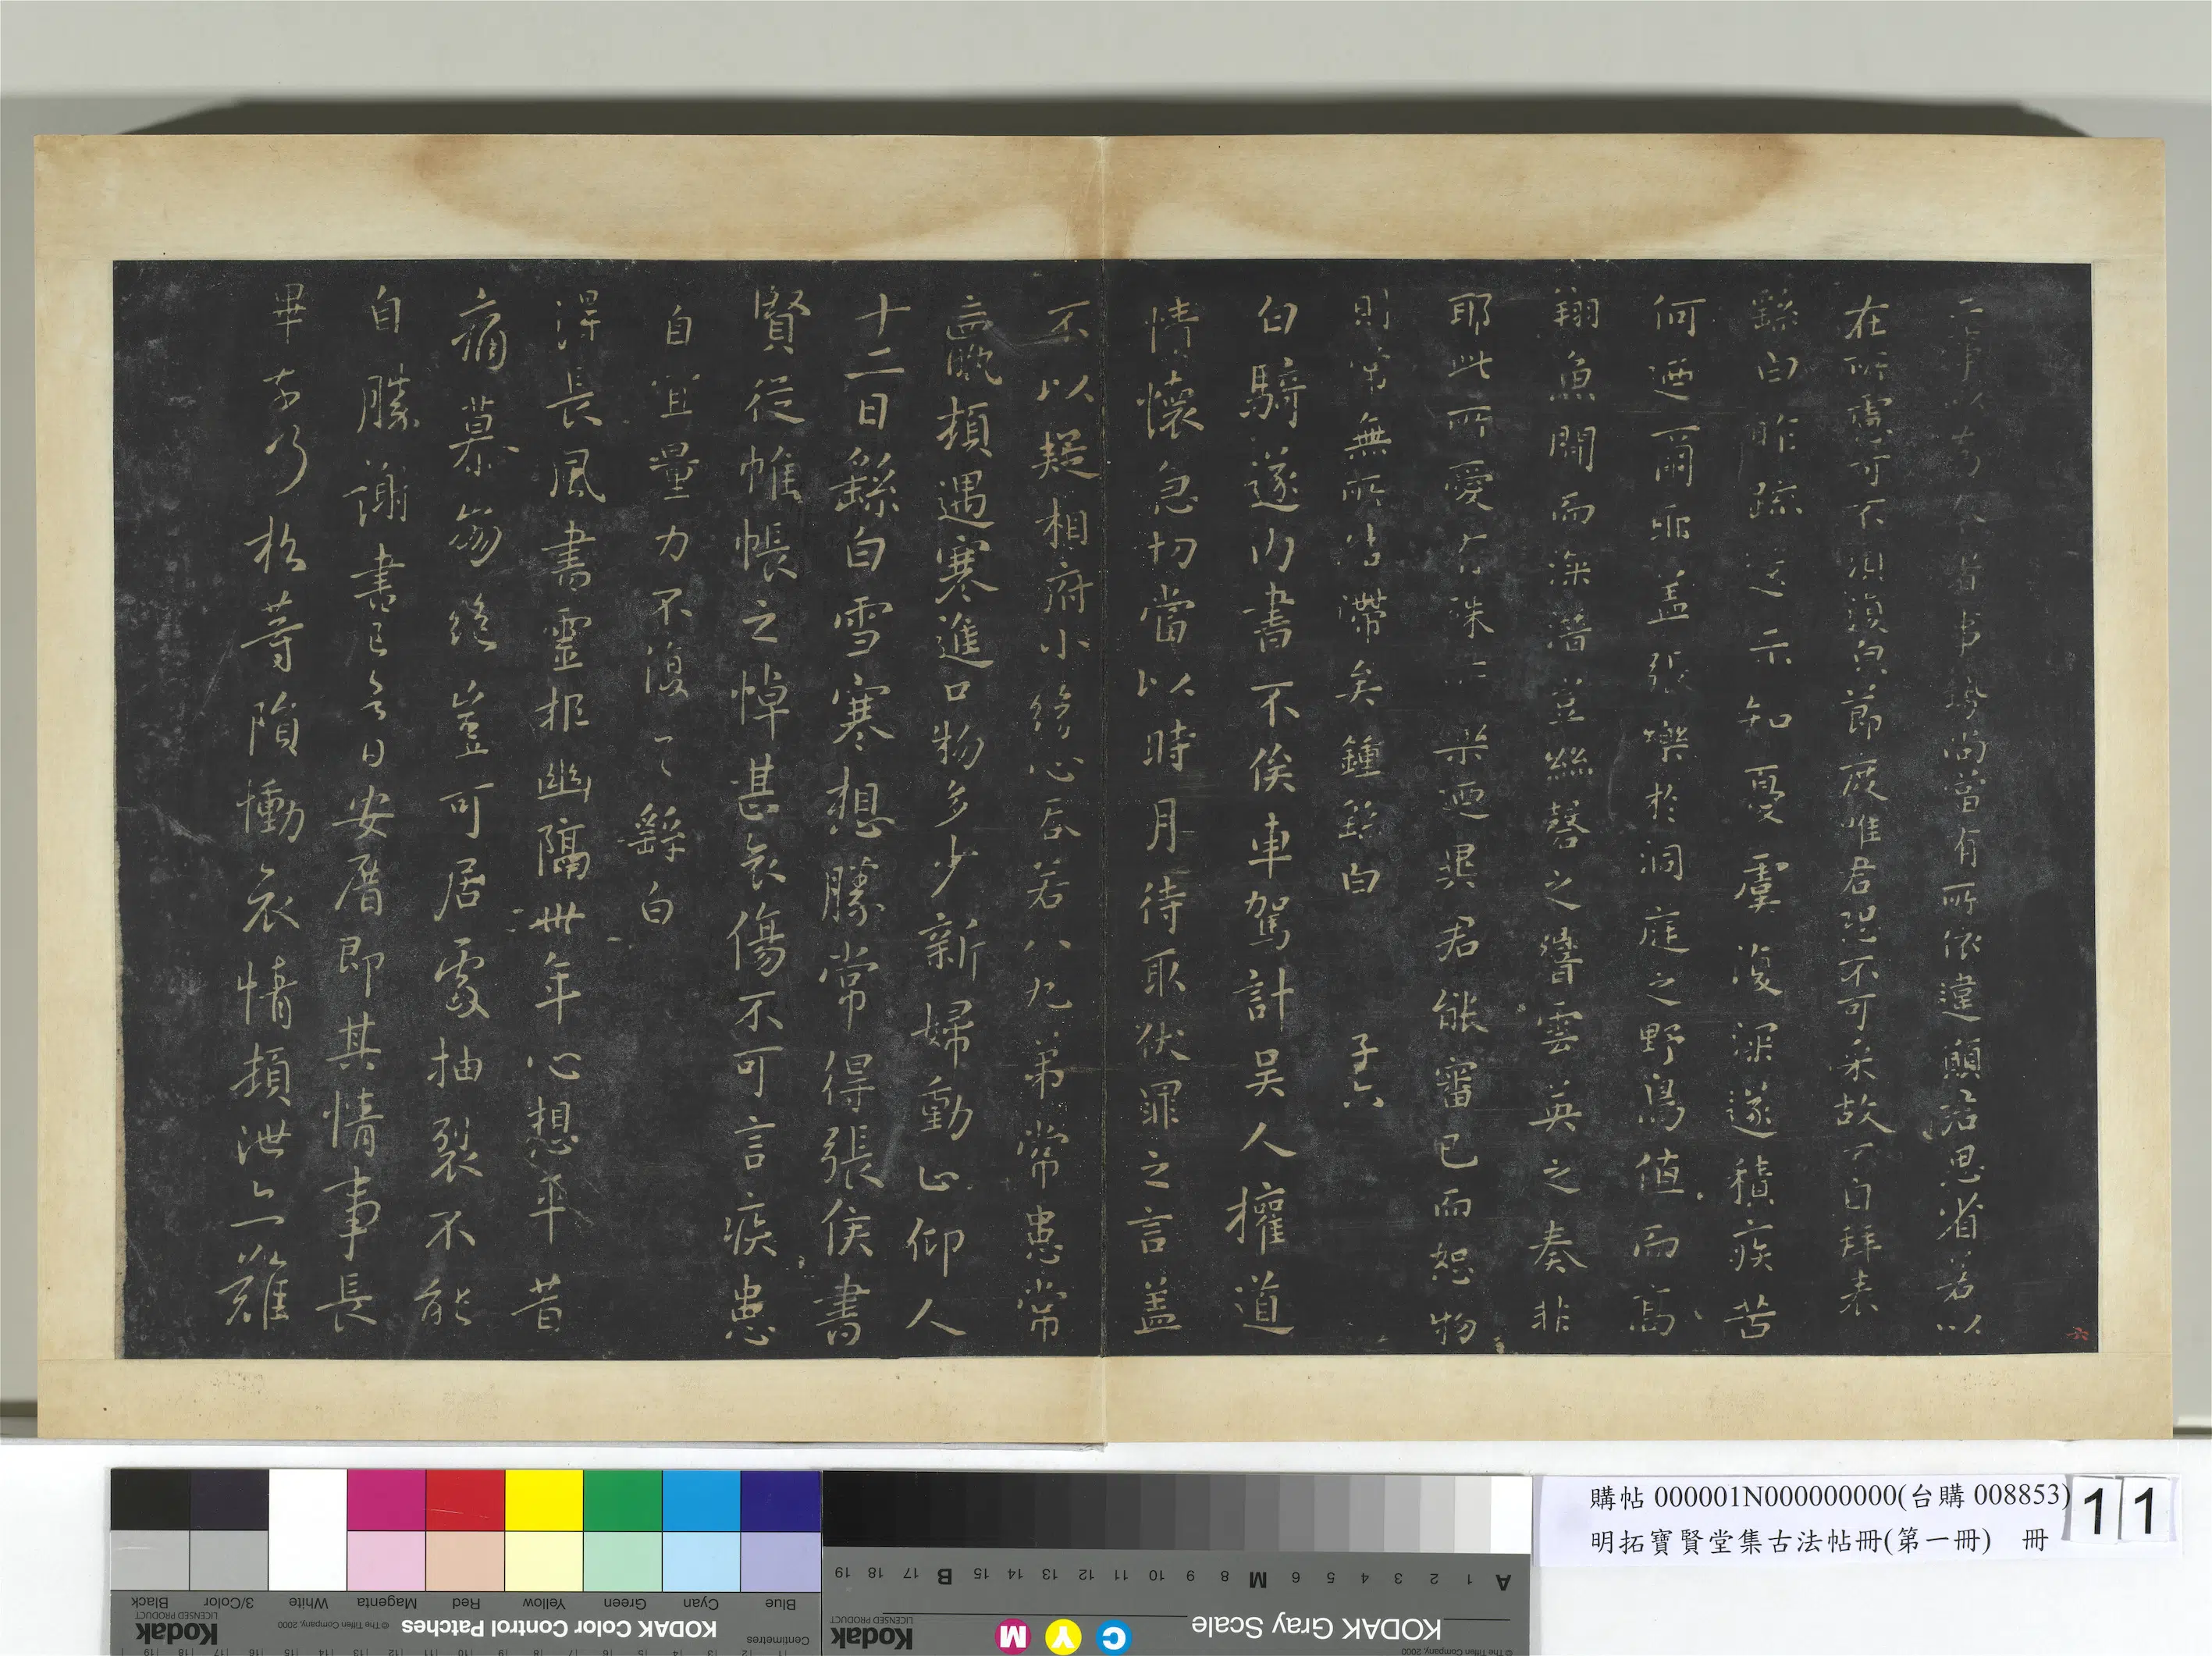 在所慮可不須復與節度唯君恐不可采故不自拜表
繇白昨疏還示知憂虞復深遂積疾苦
何迺爾耶蓋張樂於洞庭之野鳥值而高
翔魚聞而深潛豈絲磬之響雲英之奏非
耶此所愛有殊所樂迺異君能審己而恕物
則常無所結滯矣鍾繇白
白騎遂內書不俟車駕計吳人權道
情懷急切當以時月待取伏罪之言蓋
不以疑相府小緩心否若八九弟常患常
羸頓遇寒進口物多少新婦動止仰人
十二日繇白雪寒想勝常得張侯書
賢從帷帳之悼甚哀傷不可言疾患
自宜量力不復一一繇白
得長風書靈柩幽隔卅年心想平昔
痛慕崩絕豈可居處抽裂不能
自勝謝書已令日安厝即其情事長
畢
隕慟哀情頓泄亦難
購帖 000001N000000000(台購 008853)
明拓寶賢堂集古法帖冊(第一冊) 冊
11
KODAK Color Control Patches
Blue Cyan Green Yellow Red Magenta White 3/Color Black
Kodak
LICENSED PRODUCT
© The Tiffen Company, 2000
Centimetres
KODAK Gray Scale
C Y M
Kodak
LICENSED PRODUCT
A 1 2 3 4 5 6 M 8 9 10 11 12 13 14 15 B 17 18 19